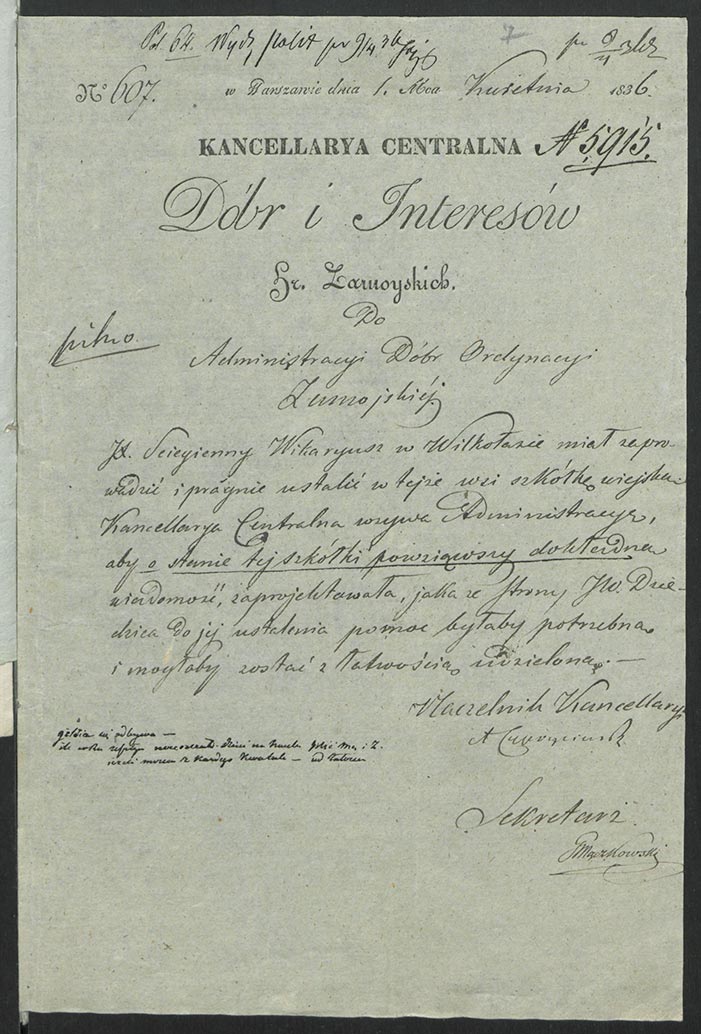 Pol. 64. Wydz. polit pr 9/4 36
7
pr 8/4 36
No 607. w Warszawie dnia 1. Mca Kwietnia 1836.
KANCELLARYA CENTRALNA No 5915.
Dóbr i Interesów
Hr. Zamoyskich.
Do
pilno.
Administracyi Dóbr Ordynacyi
Zamojskiéj.
JX. Sciegienny Wikaryusz w Wilkołazie miał zapro-
wadzić i pragnie ustalić w tejże wsi szkółkę wiejską
Kancellarya Centralna wzywa Administracyę,
aby o stanie tej szkółki powziąwszy dokładną
wiadomość, zaprojektowała, jaka ze strony JW. Dzie-
dzica do jej ustalenia pomoc byłaby potrzebną
i mogłaby zostać z łatwością udzieloną. —
Naczelnik Kancellaryi
gdzie się odbywa —
ile roku dzieci na
z każdego kwartału —
Sekretarz
Mączkowski